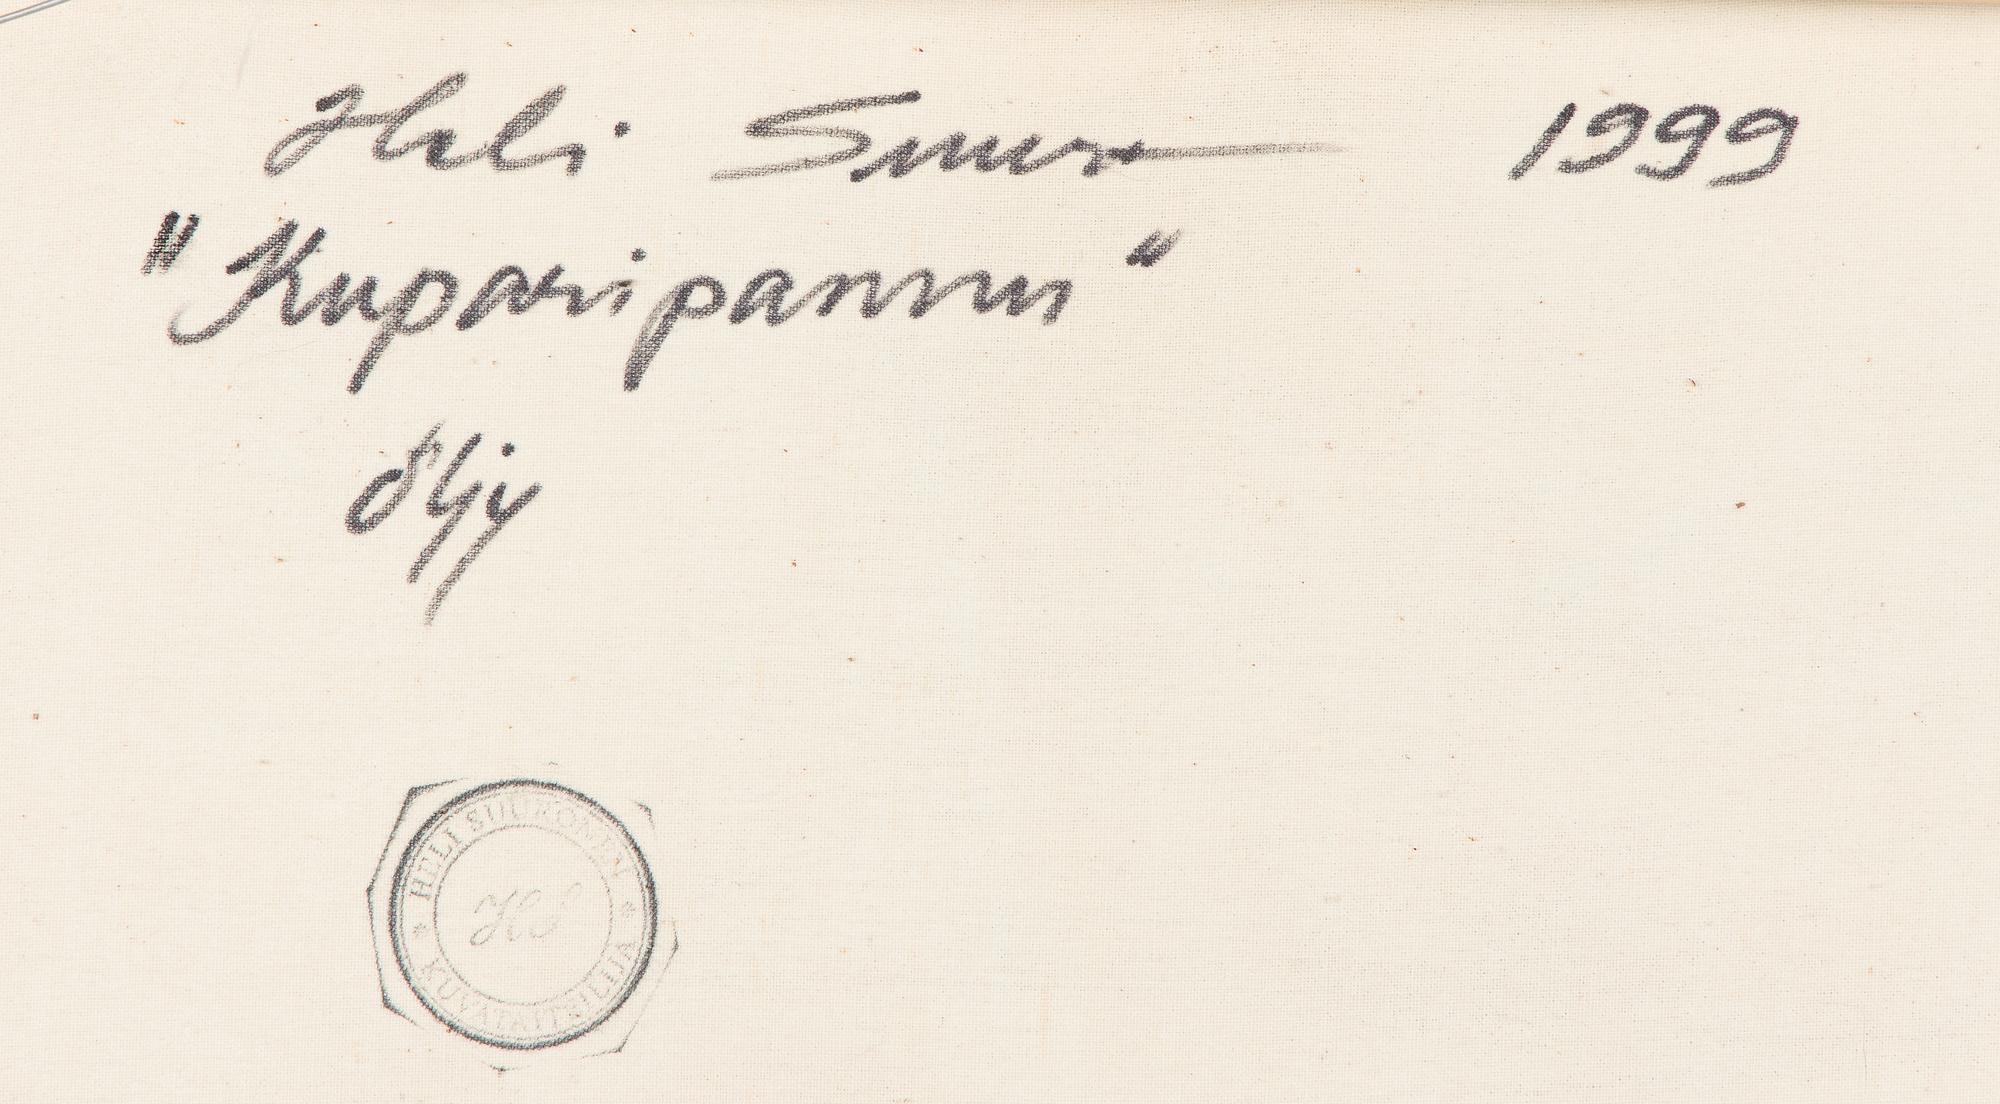 Heli Suuronen 1999
"Kuparipannu"
öljy
* HELI SUURONEN *
HS
KUVATAITEILIJA